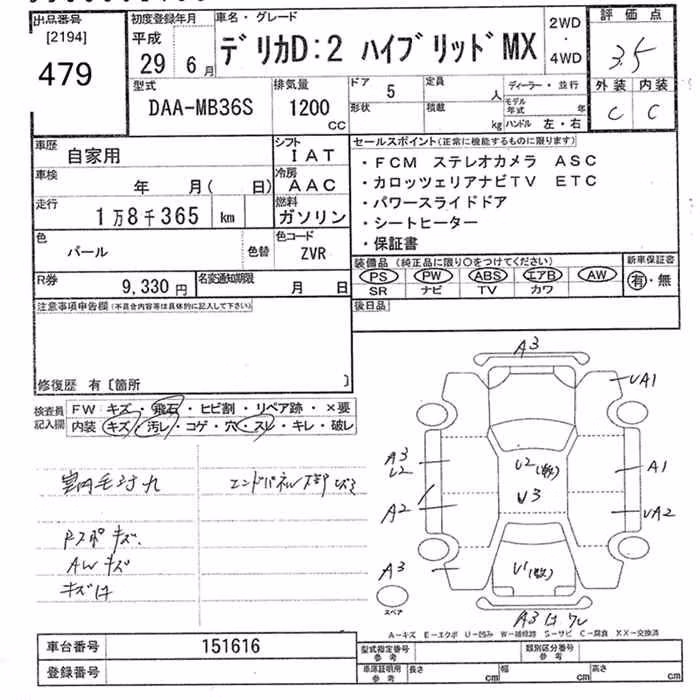 出品番号
[2194]
479
初度登録年月
平成
29 6月
車名・グレード
デリカD:2 ハイブリッドMX
2WD
・
4WD
評価点
3.5
外装 内装
C C
型式
DAA-MB36S
排気量
1200
CC
ドア 5
形状
定員 人
積載 kg
ディーラー・並行
モデル年式 年
ハンドル 左・右
車歴
自家用
シフト
IAT
車検
年 月( 日)
冷房
AAC
走行
1万8千365 km
燃料
ガソリン
色
パール
色替
色コード
ZVR
R券
9,330 円
名変通知期限
月 日
セールスポイント(正常に機能するものに限ります)
・FCM ステレオカメラ ASC
・カロッツェリアナビTV ETC
・パワースライドドア
・シートヒーター
・保証書
装備品(純正品に限り○をつけてください)
PS PW ABS エアB AW
SR ナビ TV カワ
新車保証書
有・無
後日品
注意事項申告欄(不具合内容等は具体的に記入して下さい)
修復歴 有〔箇所 〕
検査員
記入欄
FW・キズ・飛石・ヒビ割・リペア跡・×要
内装・キズ・汚レ・コゲ・穴・スレ・キレ・破レ
Pスポキズ
AWキズ
キズ
エンドパネル
A3
UA1
A3
U2
A2
U2
U3
A1
UA2
A3
U1
A3
スペア
A-キズ E-エクボ U-凹み W-補修跡 S-サビ C-腐食 XX-交換済
車台番号
151616
登録番号
型式指定番号
参考
類別区分番号
参考
車庫証明用
参考
長さ cm
幅 cm
高さ cm